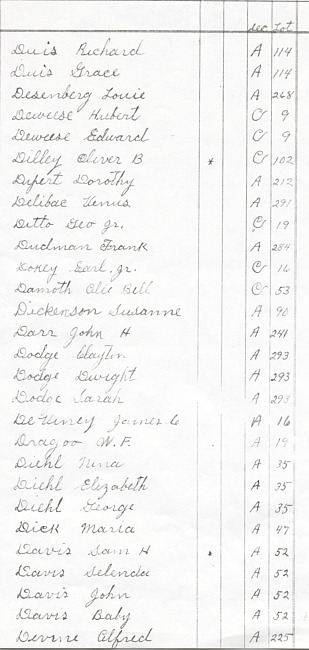 Sec Lot
Duis Richard A 114
Duis Grace A 114
Desenberg Louie A 268
Deweese Hubert Cr 9
Deweese Edward Cr 9
Dilley Oliver B * Cr 102
Dypert Dorothy A 212
Delibac Venus A 291
Ditto Geo Jr. Cr 19
Dudman Frank A 284
Earl, Jr. Cr 16
Damoth Olie Bell Cr 53
Dickenson Susanne A 90
Darr John H A 241
Dodge Clayton A 293
Dodge Dwight A 293
Dodge Sarah A 293
James A 16
Dragoo W. F. A 19
Diehl Nina A 35
Diehl Elizabeth A 35
Diehl George A 35
Dick Maria A 47
Davis Sam H * A 52
Davis Selenda A 52
Davis John A 52
Davis Baby A 52
Devine Alfred A 225